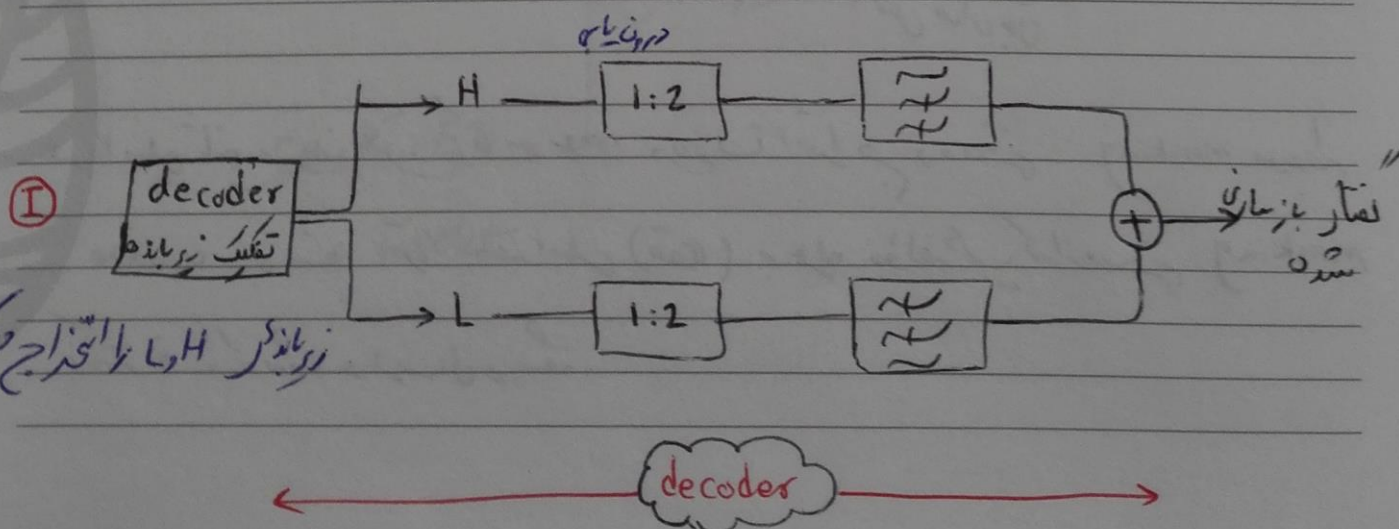 درون‌یابی
H
1:2
I
decoder
تفکیک زیرباندها
+
" تصاویر بازسازی
شده
L
1:2
زیرباندهای H و L را استخراج
decoder